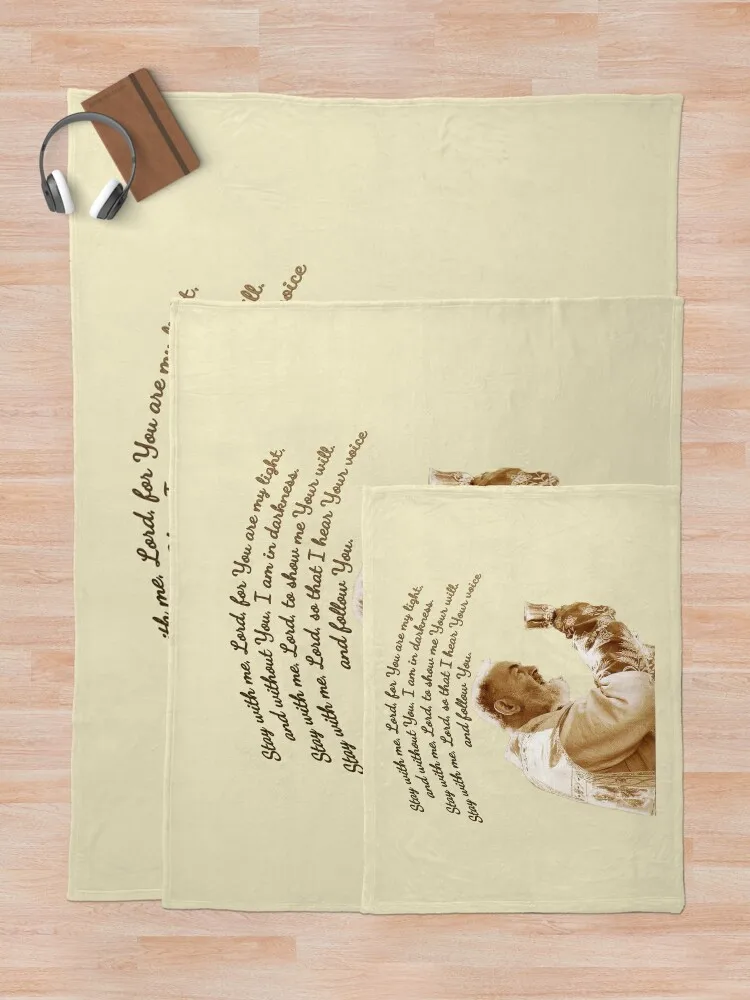 me, Lord, for You are my
Stay with me, Lord, for You are my light,
and without You, I am in darkness.
Stay with me, Lord, to show me Your will.
Stay with me, Lord, so that I hear Your voice
and follow You.
Stay with me, Lord, for You are my light,
and without You, I am in darkness.
Stay with me, Lord, to show me Your will.
Stay with me, Lord, so that I hear Your voice
and follow You.